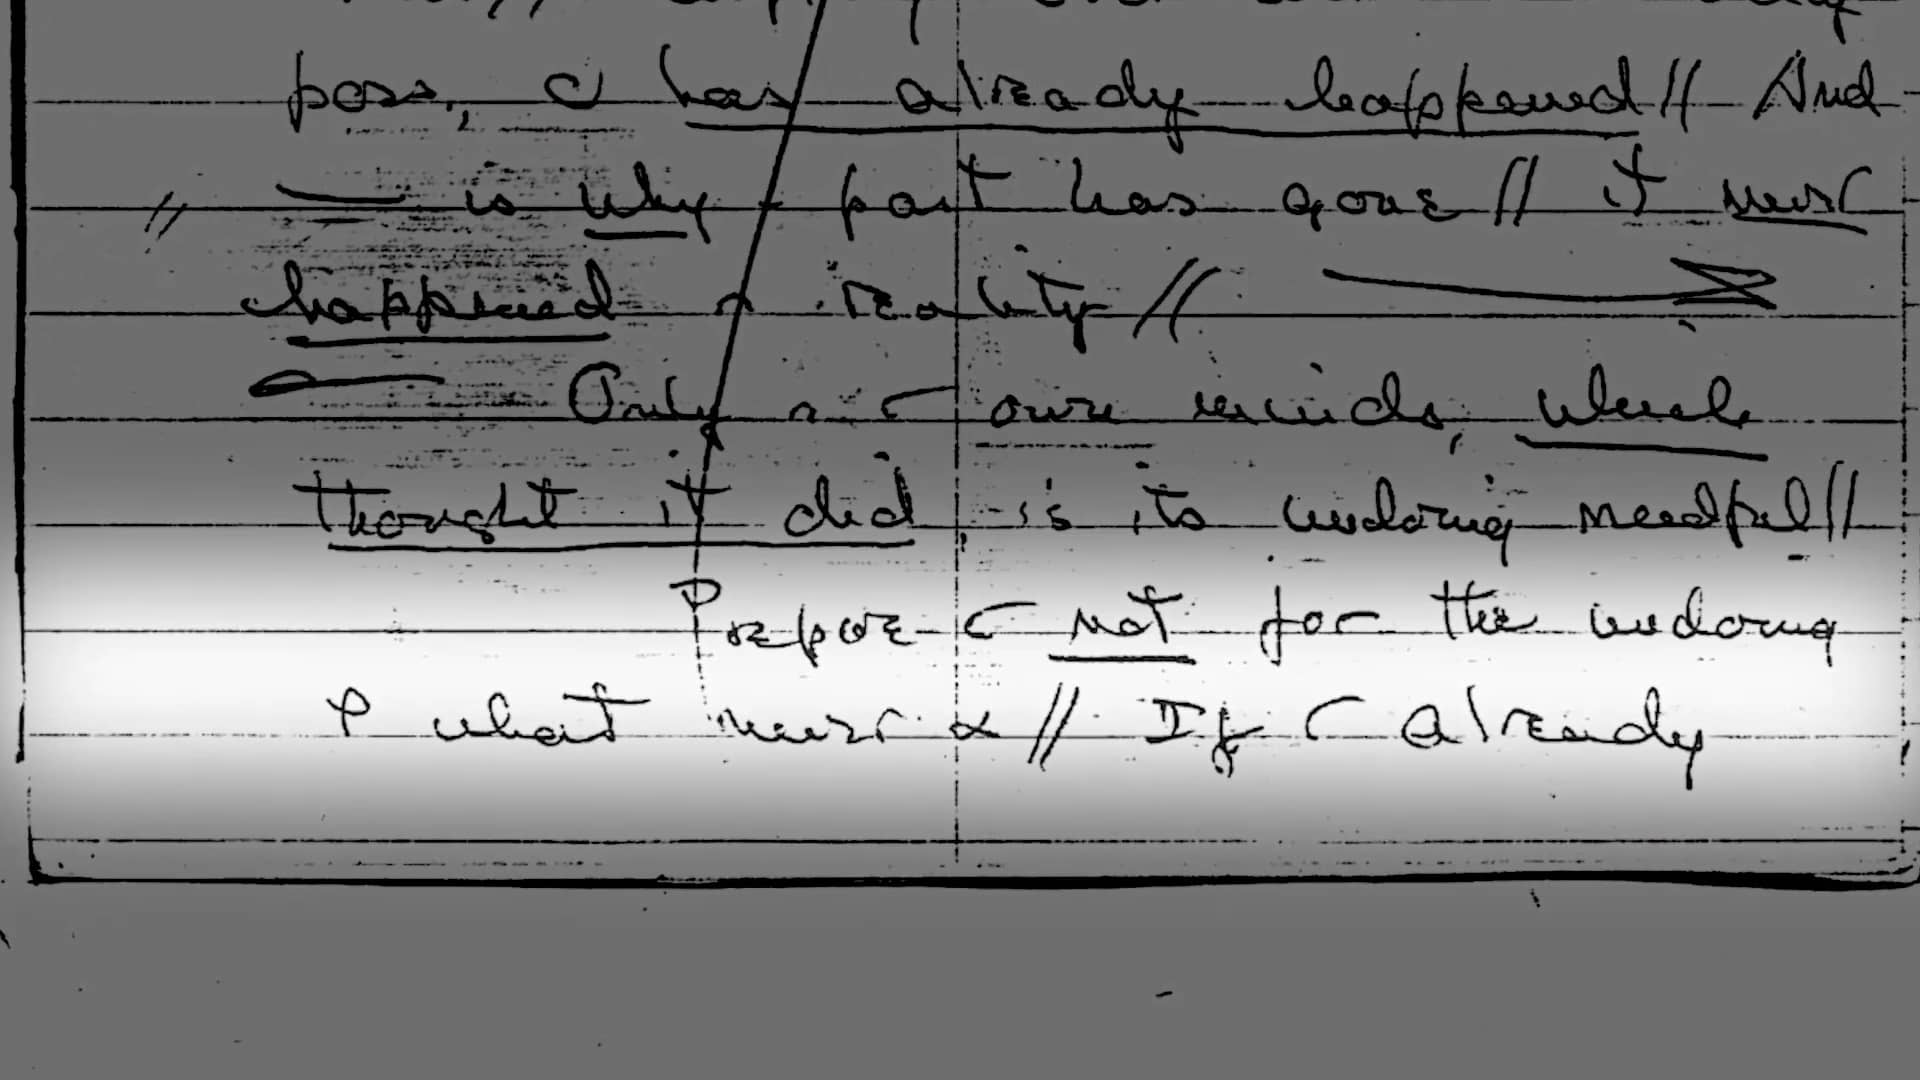 poss, has already happened // And
// — is why past has gone // it never
happened reality //
Only own minds, which
thought it did, is its undoing needful //
Prepare not for the undoing
what never // If already